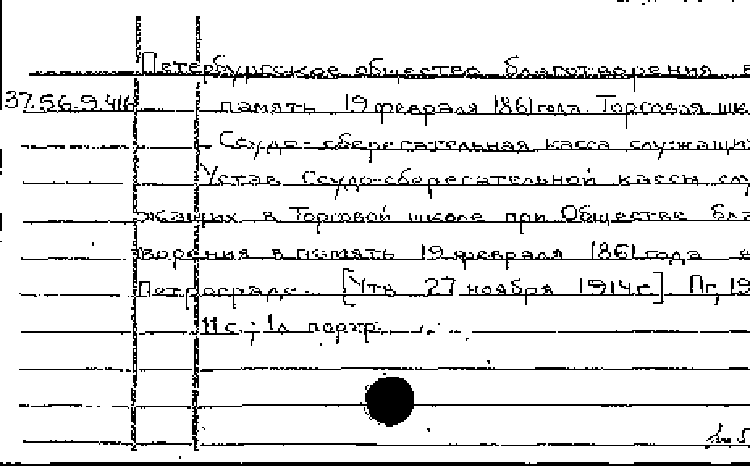 Петербургское общество благотворения в
37.56.9.416 память 19 февраля 1861 года. Торговая шко
Ссудо-сберегательная касса служащих
Устав Ссудо-сберегательной кассы слу
жащих в Торговой школе при Обществе благ
ворения в память 19 февраля 1861 года в
Петрограде. [Утв. 27 ноября 1914 г.]. Пг, 19
11 с; 1 л портр.